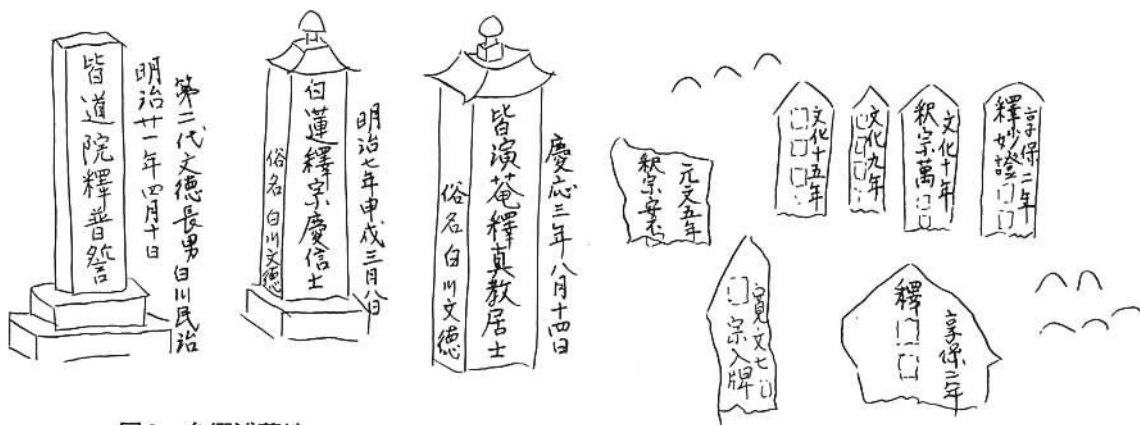 皆道院釋普誓
明治廿一年四月十日
第二代文徳長男白川民治
白蓮釋宗慶信士
俗名 白川文徳
明治七年申戌三月八日
皆演菴釋真教居士
俗名 白川文徳
慶応三年八月十四日
元文五年
釈宗安
文化十五年
□□□□
文化九年
文化十年
釈宗萬□□
享保二年
釋妙證□□
寛文七□
□宗入牌
享保二年
釋□□